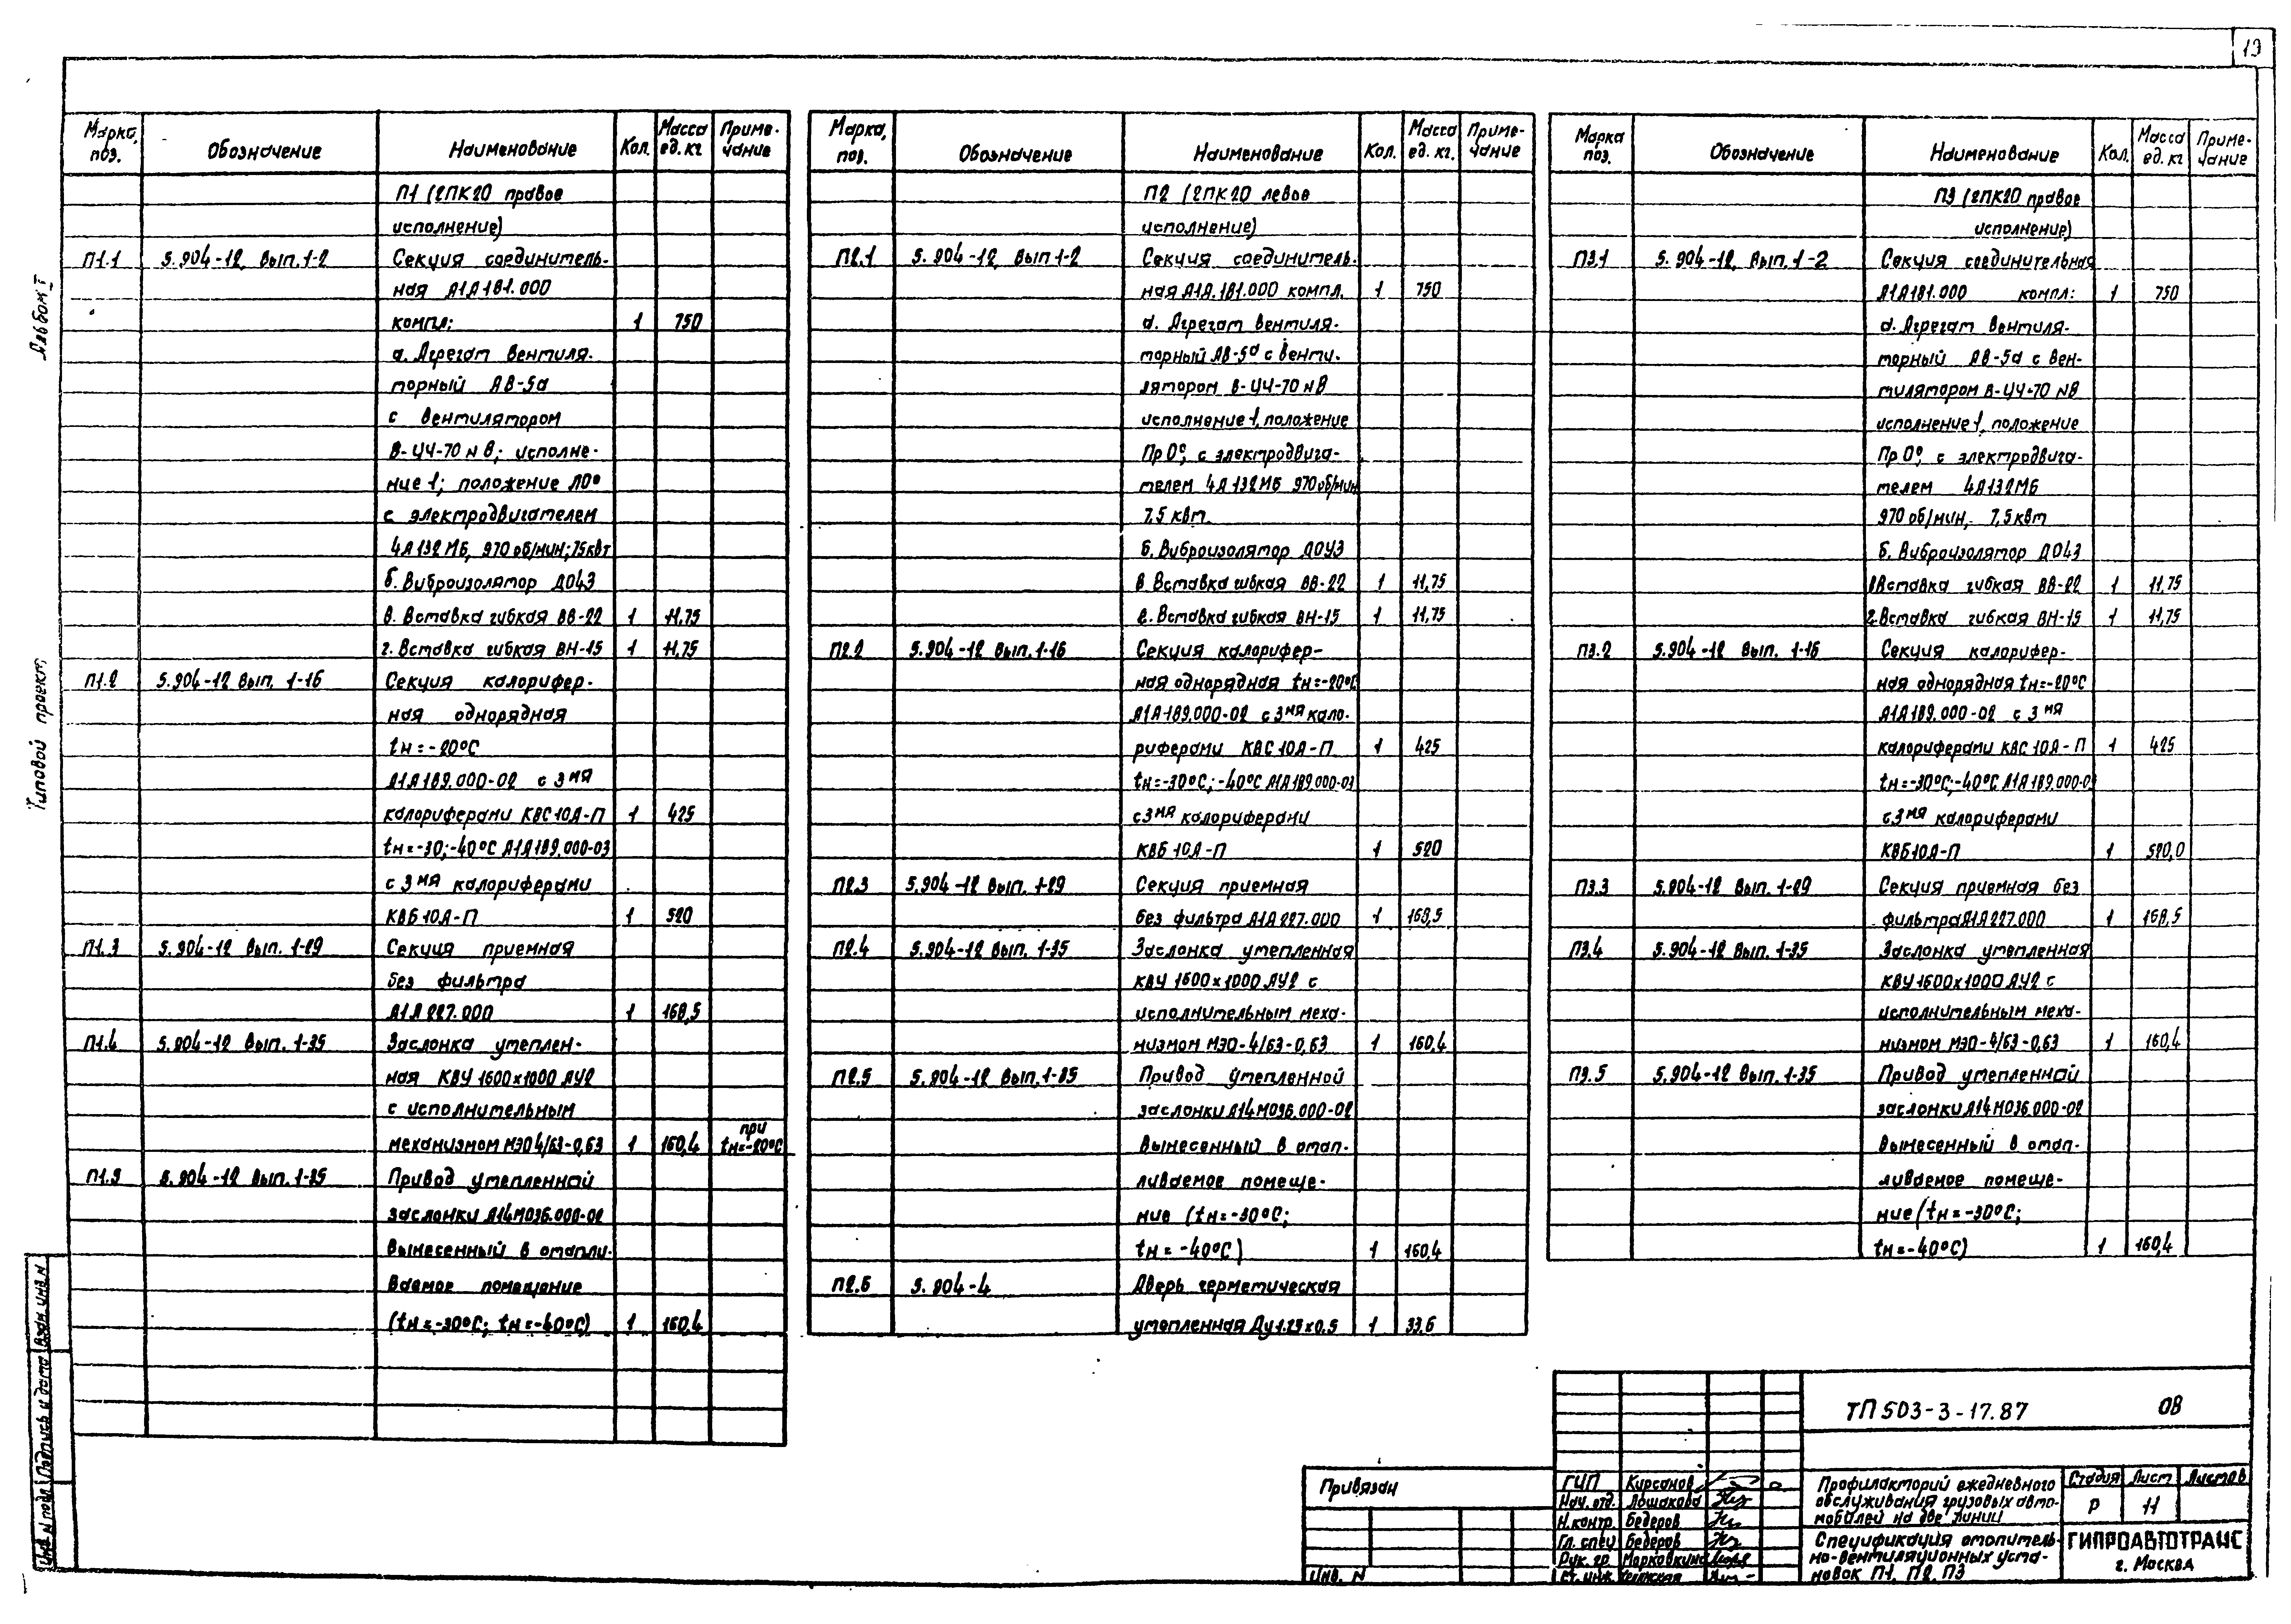 19
Альбом I
Типовой проект
Марка, поз. Обозначение Наименование Кол. Масса ед. кг Приме-чание
П1 (2ПК20 правое
исполнение)
П1.1 5.904-12, вып. 1-2 Секция соединитель-
ная А1А181.000
компл: 1 750
а. Агрегат вентиля-
торный АВ-5а
с вентилятором
В-Ц4-70 N 8; исполне-
ние 1; положение Л0°
с электродвигателем
4А132М6, 970 об/мин; 7,5кВт
б. Виброизолятор ДО43
в. Вставка гибкая ВВ-22 1 11,75
г. Вставка гибкая ВН-15 1 11,75
П1.2 5.904-12 вып. 1-16 Секция калорифер-
ная однорядная
tн = -20°С
А1А189.000-02 с 3мя
калориферами КВС10А-П 1 425
tн=-30;-40°С А1А189.000-03
с 3мя калориферами
КВБ10А-П 1 520
П1.3 5.904-12 вып. 1-29 Секция приемная
без фильтра
А1А227.000 1 168,5
П1.4 5.904-12 вып. 1-35 Заслонка утеплен-
ная КВУ 1600х1000 АУ2
с исполнительным
механизмом МЭО4/63-0,63 1 160,4 при tн=-20°С
П1.5 5.904-12 вып. 1-35 Привод утепленной
заслонки А14М036.000-02
вынесенный в отапли-
ваемое помещение
(tн=-30°С; tн=-40°С) 1 160,4
Марка, поз. Обозначение Наименование Кол. Масса ед. кг. Приме-чание
П2 (2ПК20 левое
исполнение)
П2.1 5.904-12, вып 1-2 Секция соединитель-
ная А1А.181.000 компл. 1 750
а. Агрегат вентиля-
торный АВ-5а с венти-
лятором В-Ц4-70 N8
исполнение 1, положение
Пр 0°, с электродвига-
телем 4А132М6 970об/мин
7,5 квт.
б. Виброизолятор ДОУЗ
в Вставка гибкая ВВ-22 1 11,75
г. Вставка гибкая ВН-15 1 11,75
П2.2 5.904-12 вып. 1-16 Секция калорифер-
ная однорядная tн=-20°С
А1А189.000-02 с 3мя кало-
риферами КВС10А-П 1 425
tн=-30°С; -40°С А1А189.000-03
с 3мя калориферами
КВБ10А-П 1 520
П2.3 5.904-12 вып. 1-29 Секция приемная
без фильтра А1А227.000 1 168,5
П2.4 5.904-12 вып. 1-35 Заслонка утепленная
КВУ 1600х1000 АУ2 с
исполнительным меха-
низмом МЭО-4/63-0,63 1 160,4
П2.5 5.904-12 вып. 1-35 Привод утепленной
заслонки А14М036.000-02
вынесенный в отап-
ливаемое помеще-
ние (tн=-30°С;
tн = -40°С) 1 160,4
П2.6 5.904-4 Дверь герметическая
утепленная Ду1.25х0.5 1 33,6
Марка поз. Обозначение Наименование Кол. Масса ед. кг Приме-чание
П3 (2ПК20 правое
исполнение)
П3.1 5.904-12, вып. 1-2 Секция соединительная
А1А181.000 компл: 1 750
а. Агрегат вентиля-
торный АВ-5а с вен-
тилятором В-Ц4-70 N8
исполнение 1, положение
Пр 0°, с электродвига-
телем 4А132М6
970 об/мин, 7,5 квт
б. Виброизолятор ДО43
в Вставка гибкая ВВ-22 1 11,75
г. Вставка гибкая ВН-15 1 11,75
П3.2 5.904-12 вып. 1-16 Секция калорифер-
ная однорядная tн=-20°С
А1А189.000-02 с 3мя
калориферами КВС10А-П 1 425
tн=-30°С;-40°С А1А189.000-03
с 3мя калориферами
КВБ10А-П 1 520,0
П3.3 5.904-12 вып. 1-29 Секция приемная без
фильтра А1А227.000 1 168,5
П3.4 5.904-12 вып. 1-35 Заслонка утепленная
КВУ 1600х1000 АУ2 с
исполнительным меха-
низмом МЭО-4/63-0,63 1 160,4
П3.5 5.904-12 вып. 1-35 Привод утепленной
заслонки А14М036.000-02
вынесенный в отап-
ливаемое помеще-
ние (tн=-30°С;
tн=-40°С) 1 160,4
Инв. N подл Подпись и дата Взам. инв. N
ТП 503-3-17.87 ОВ
Привязан
Инв. N
ГИП Кирсанов
Нач. отд. Лошакова
Н.контр. Бедеров
Гл. спец Бедеров
Рук. гр. Марковкина
Ст. инж.
Профилакторий ежедневного
обслуживания грузовых авто-
мобилей на две линии
Стадия Лист Листов
Р 11
Спецификация отопитель-
но-вентиляционных уста-
новок П1, П2, П3
ГИПРОАВТОТРАНС
г. Москва